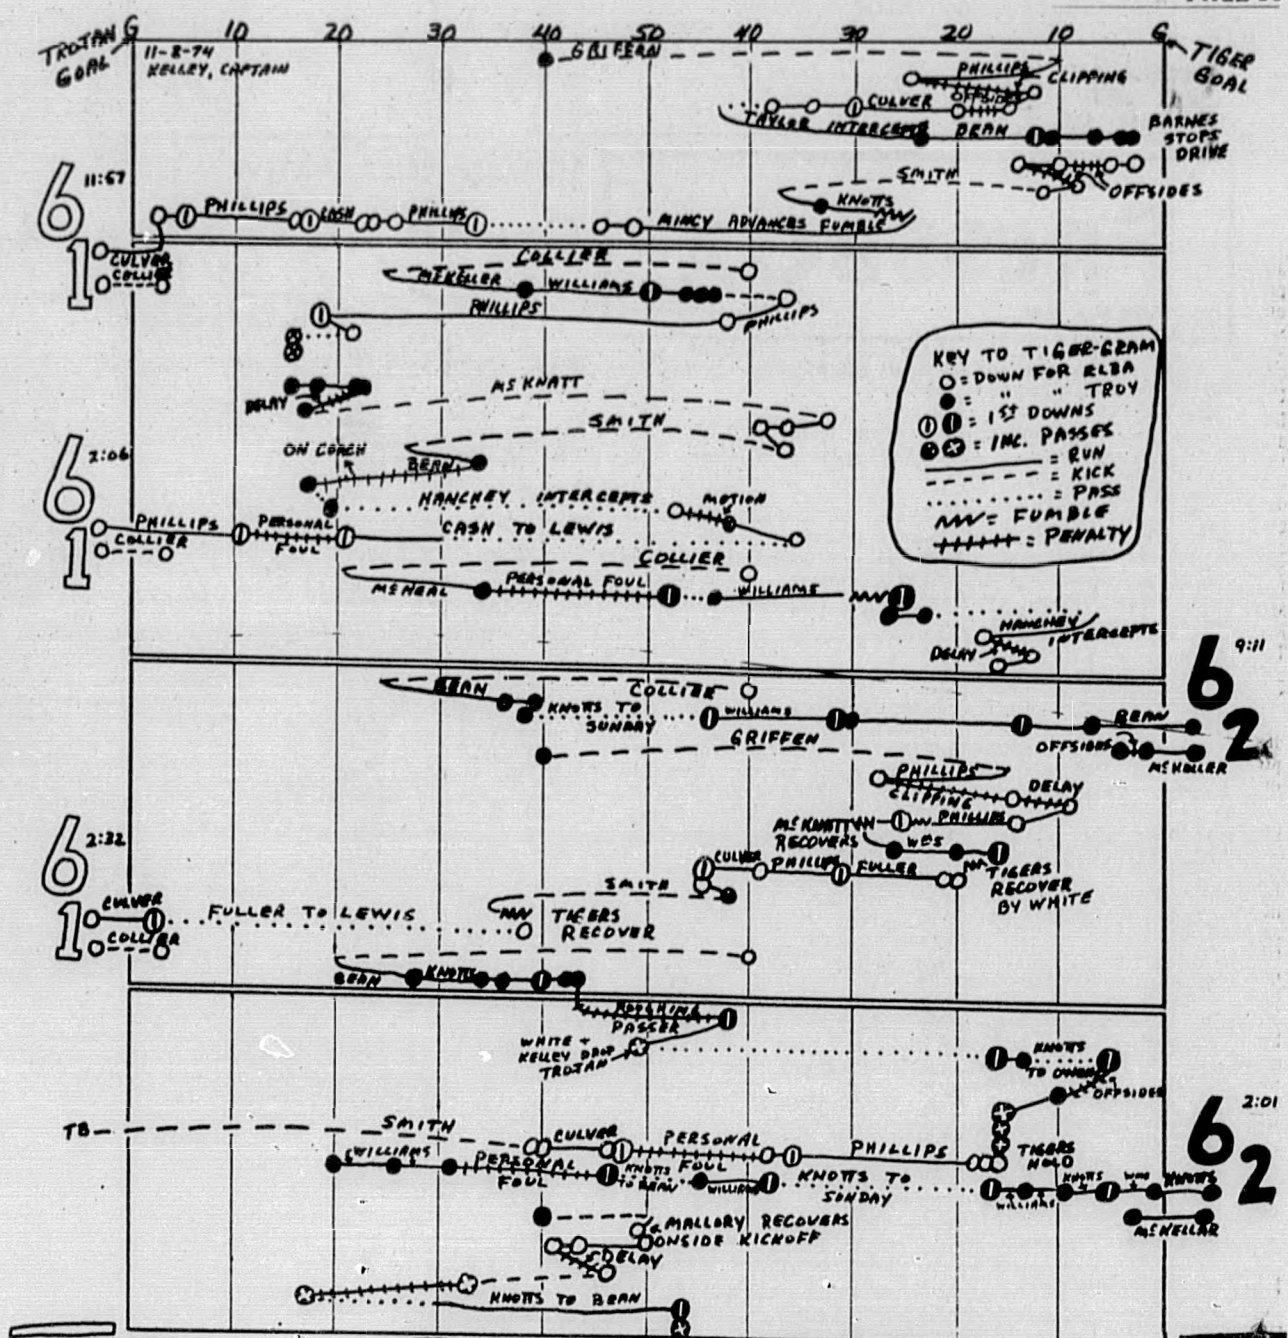 TROJAN GOAL
G 10 20 30 40 50 40 30 20 10 G
TIGER GOAL
11-8-74
KELLEY, CAPTAIN
GRIFFEN
PHILLIPS
CLIPPING
OFFSIDES
CULVER
TAYLOR INTERCEPTS
BEAN
BARNES
STOPS
DRIVE
OFFSIDES
SMITH
KNOTTS
6 11:57
PHILLIPS
CASH
PHILLIPS
MINCY ADVANCES FUMBLE
1
CULVER
COLLIER
COLLIER
McKELLER
WILLIAMS
PHILLIPS
PHILLIPS
KEY TO TIGER-GRAM
= DOWN FOR ELBA
= " " TROY
= 1ST DOWNS
= INC. PASSES
= RUN
= KICK
= PASS
= FUMBLE
= PENALTY
DELAY
McKNATT
SMITH
ON COACH
BEAN
6 2:06
HANCHEY INTERCEPTS
MOTION
PHILLIPS
PERSONAL
FOUL
CASH TO LEWIS
1
COLLIER
COLLIER
McNEAL
PERSONAL FOUL
WILLIAMS
HANCHEY
INTERCEPTS
DELAY
6 9:11
BEAN
COLLIER
KNOTTS TO
SUNDAY
WILLIAMS
BEAN
2
GRIFFEN
OFFSIDES
McKELLER
PHILLIPS
CLIPPING
DELAY
PHILLIPS
McKNATT
RECOVERS
6 2:32
CULVER
PHILLIPS
FULLER
TIGERS
RECOVER
BY WHITE
SMITH
CULVER
FULLER TO LEWIS
TIGERS
RECOVER
1
COLLIER
BEAN
KNOTTS
ROUGHING
PASSER
WHITE +
KELLEY DROP
TROJAN
KNOTTS
TO OWEN
OFFSIDES
6 2:01
TB
SMITH
CULVER
PERSONAL
FOUL
PHILLIPS
TIGERS
HOLD
WILLIAMS
PERSONAL
FOUL
KNOTTS
TO BEAN
WILLIAMS
KNOTTS TO
SUNDAY
WILLIAMS
KNOTTS
WMS
KNOTTS
2
McKELLAR
MALLORY RECOVERS
ONSIDE KICKOFF
DELAY
KNOTTS TO BEAN